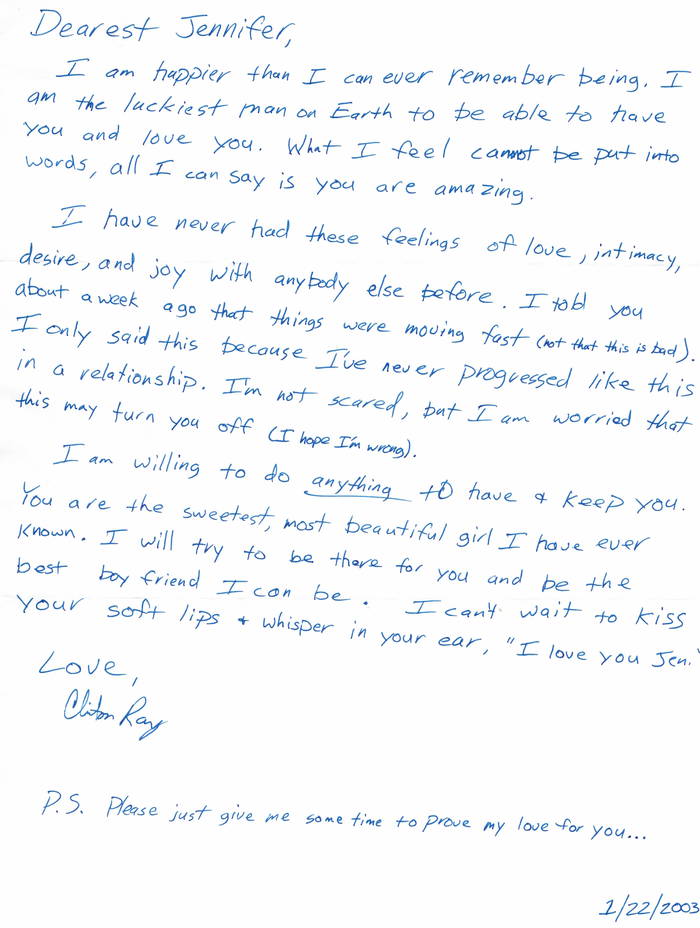 Dearest Jennifer,
I am happier than I can ever remember being. I
am the luckiest man on Earth to be able to have
you and love you. What I feel cannot be put into
words, all I can say is you are amazing.
I have never had these feelings of love, intimacy,
desire, and joy with anybody else before. I told you
about a week ago that things were moving fast (not that this is bad).
I only said this because I've never progressed like this
in a relationship. I'm not scared, but I am worried that
this may turn you off (I hope I'm wrong).
I am willing to do anything to have & keep you.
You are the sweetest, most beautiful girl I have ever
known. I will try to be there for you and be the
best boy friend I can be. I can't wait to kiss
your soft lips & whisper in your ear, "I love you Jen."
Love,
Clinton Ray
P.S. Please just give me some time to prove my love for you...
1/22/2003